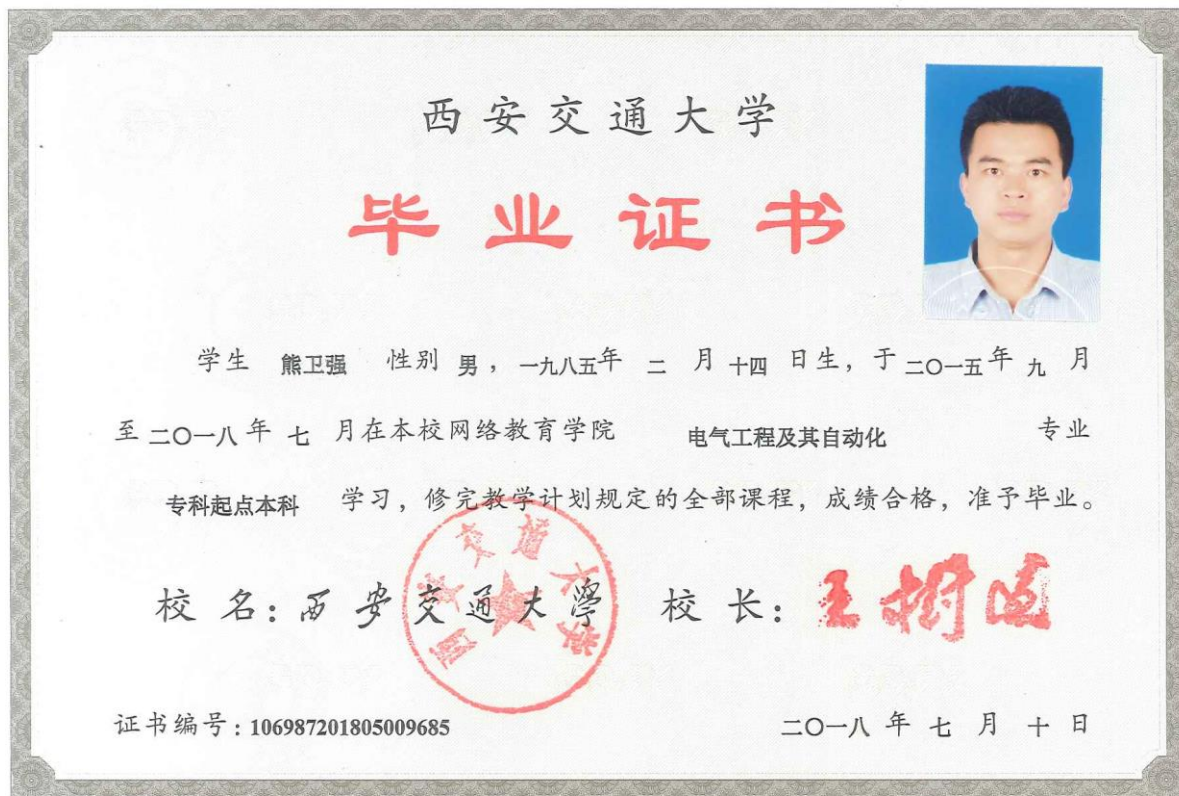 西安交通大学
毕业证书
学生 熊卫强 性别 男，一九八五年 二 月 十四 日生，于 二〇一五年 九 月
至 二〇一八 年 七 月在本校网络教育学院 电气工程及其自动化 专业
专科起点本科 学习，修完教学计划规定的全部课程，成绩合格，准予毕业。
校 名：西安交通大学 校 长：王树国
西安交通大学
证书编号：106987201805009685 二〇一八 年 七 月 十 日